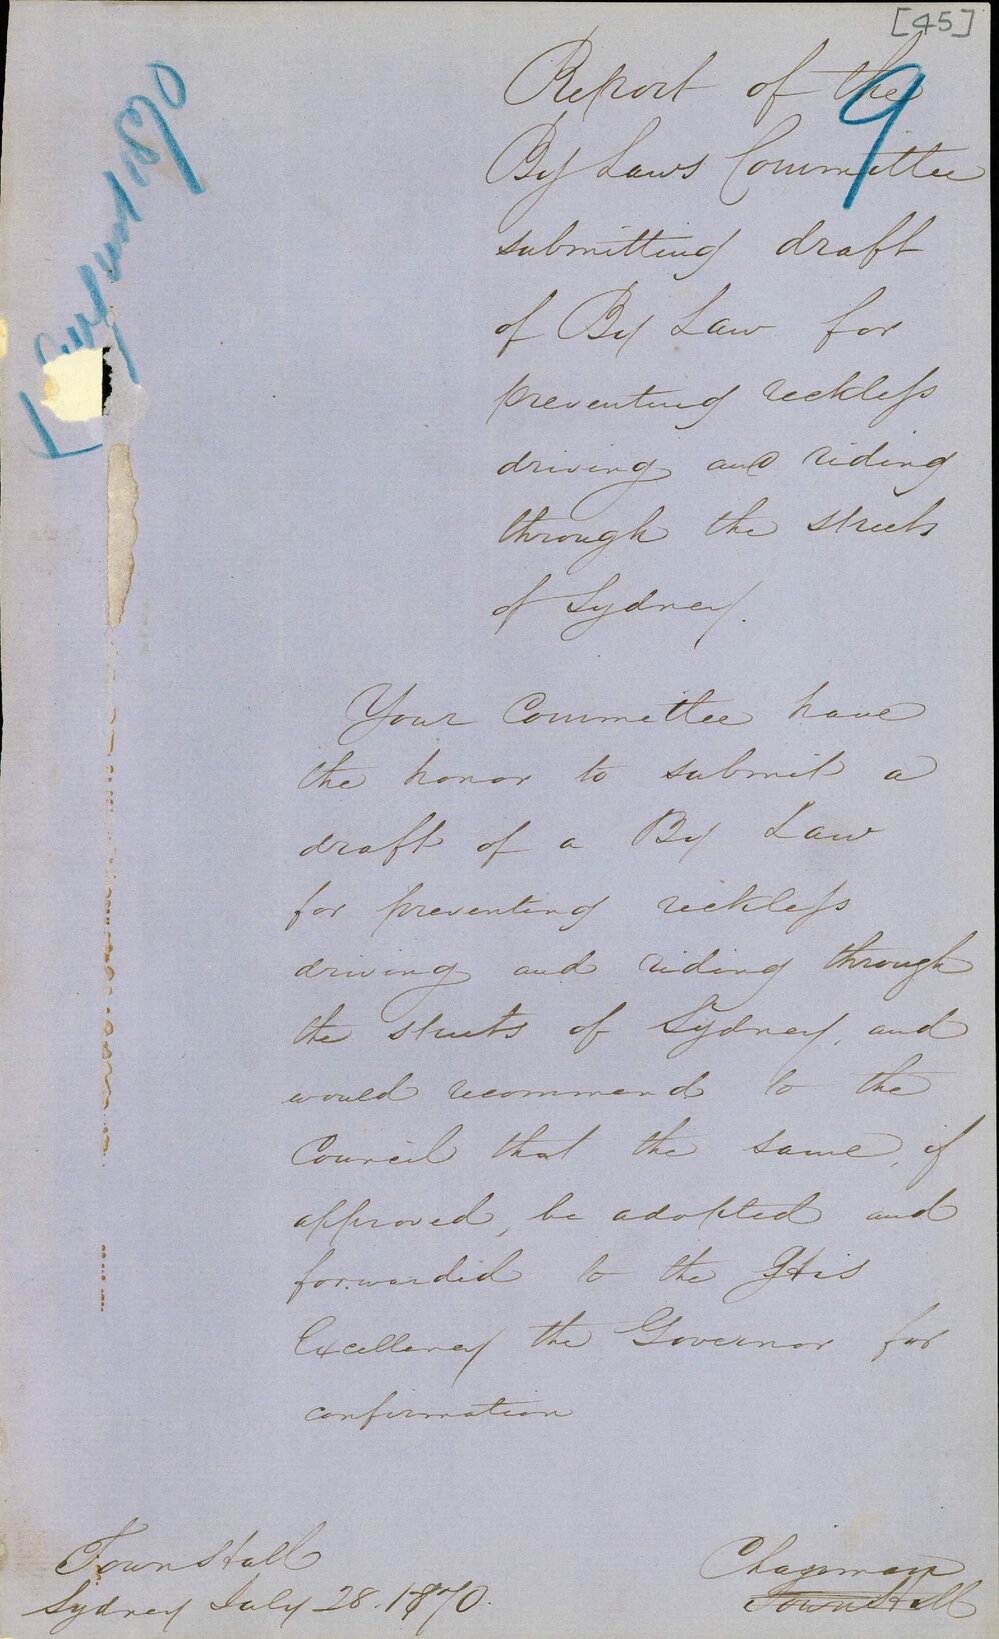 [45]
9
Report of the
By Laws Committee
submitting draft
of By Law for
preventing reckless
driving and riding
through the streets
of Sydney.
Your Committee have
the honor to submit a
draft of a By Law
for preventing reckless
driving and riding through
the streets of Sydney, and
would recommend to the
Council that the same, if
approved, be adopted and
forwarded to the His
Excellency the Governor for
confirmation
Town Hall
Sydney July 28. 1870.
Chairman
Town Hall